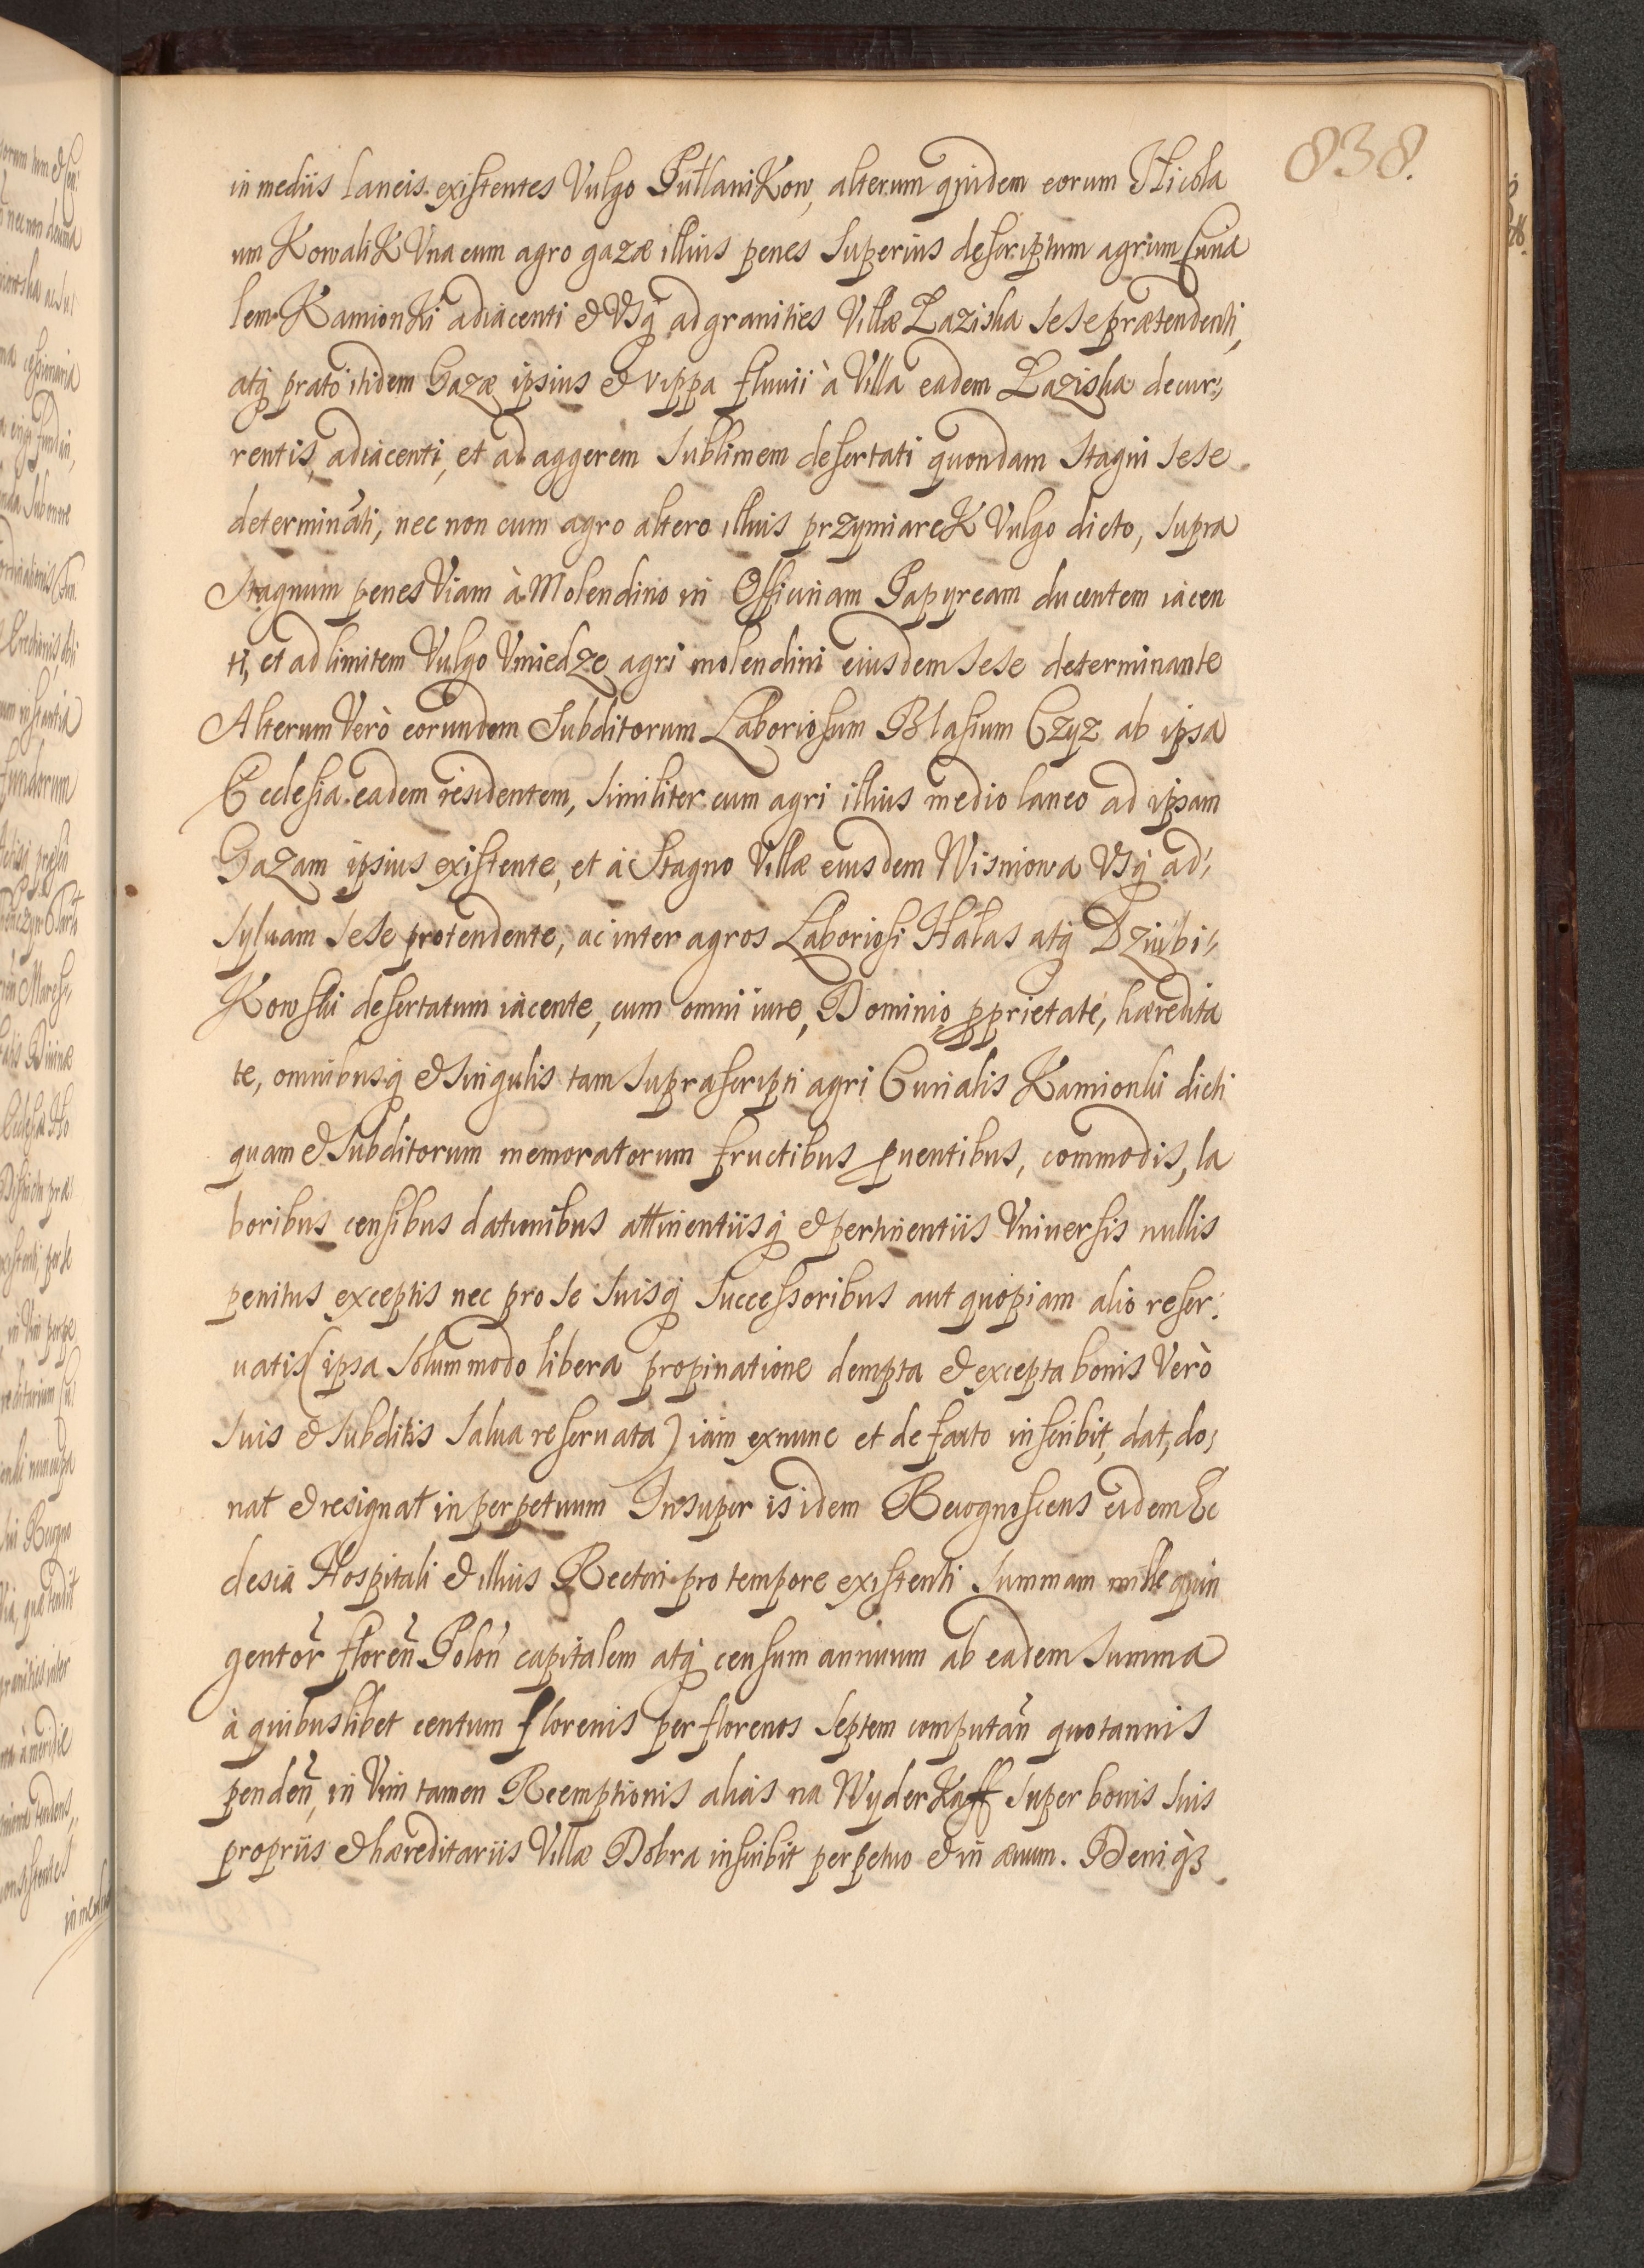 838.
in mediis laneis existentes Vulgo Pułlanikow, alterum quidem eorum Nicola
um Kowalik Vna cum agro gazæ illius penes superius descriptum agrum Curia
lem Kamionki adiacenti & Vsq̃ ad granities Villæ Łaziska sese prætendenti,
atq̃ prato itidem Gazæ ipsius & rippa fluuii à Villa eadem Łaziska decur,,
rentis, adiacenti, et ad aggerem sublimem desertati quondam Stagni sese
determinãti, nec non cum agro altero illius przymiarek Vulgo dicto, supra
Stagnum penes Viam à Molendino in Officinam Papyream ducentem iacen
ti, et ad limitem Vulgo Vmiedze agri molendini eiusdem sese determinante
Alterum Verò eorundem Subditorum Laboriosum Blasium Czyz ab ipsa
Ecclesia eadem residentem, similiter cum agri illius medio laneo ad ipsam
Gazam ipsius existente, et à Stagno Villæ eiusdem Wisniowa Vsq̃ ad,
syluam sese protendente, ac inter agros Laboriosi Hałas atq̃ Dziubi,,
Kowski desertatum iacente, cum omni iure, Dominio, ꝓprietate, hæredita
te, omnibusq̃ & singulis tam suprascripti agri Curialis Kamionki dicti
quam & Subditorum memoratorum fructibus ꝓuentibus, commodis, la
boribus censibus dationibus attinentiisq̃ & pertinentiis Vniuersis nullis
penitus exceptis nec pro se suisq̃ successoribus aut quopiam alio reser,
uatis (ipsa solummodo libera propinatione dempta & excepta bonis Verò
suis & subditis salua reseruata) iam exnunc et de facto inscribit, dat, do,
nat & resignat in perpetuum Insuper is idem Recognoscens eidem Ec
clesiæ Hospitali & illius Rectori pro tempore existenti summam mille quin
gentor̃ floreñ Poloñ capitalem atq̃ censum annuum ab eadem summa
à quibuslibet centum florenis per florenos septem computañ quotannis
pendeñ, in Vim tamen Reemptionis alias na Wyderkaff super bonis suis
propriis & hæreditariis Villæ Dobra inscribit perpetuo & in æuum. Deniq̃ꝫ